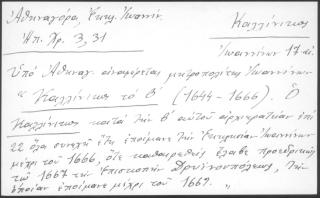 Ἀθηναγόρας, Ἐκκλ. Ἰωανν.
Ἠπ. Χρ. 3, 31
Καλλίνικος
Ἰωαννίνων 17 αἰ.
Ὑπὸ Ἀθηναγ. ἀναφέρεται μητροπολίτης Ἰωαννίνων
"Καλλίνικος τὸ Β΄ (1644 - 1666). Ὁ
Καλλίνικος κατὰ τὴν β΄ αὐτοῦ ἀρχιερατείαν ἐπὶ
22 ὅλα συνεχῆ ἔτη ἐποίμανε τὴν Ἐκκλησίαν Ἰωαννίνων
μέχρι τοῦ 1666, ὅτε καθαιρεθεὶς ἔλαβε προεδρικῶς
τῷ 1667 τὴν Ἐπισκοπὴν Δρυϊνουπόλεως, τὴν
ὁποίαν ἐποίμανε μέχρι τοῦ 1669. "